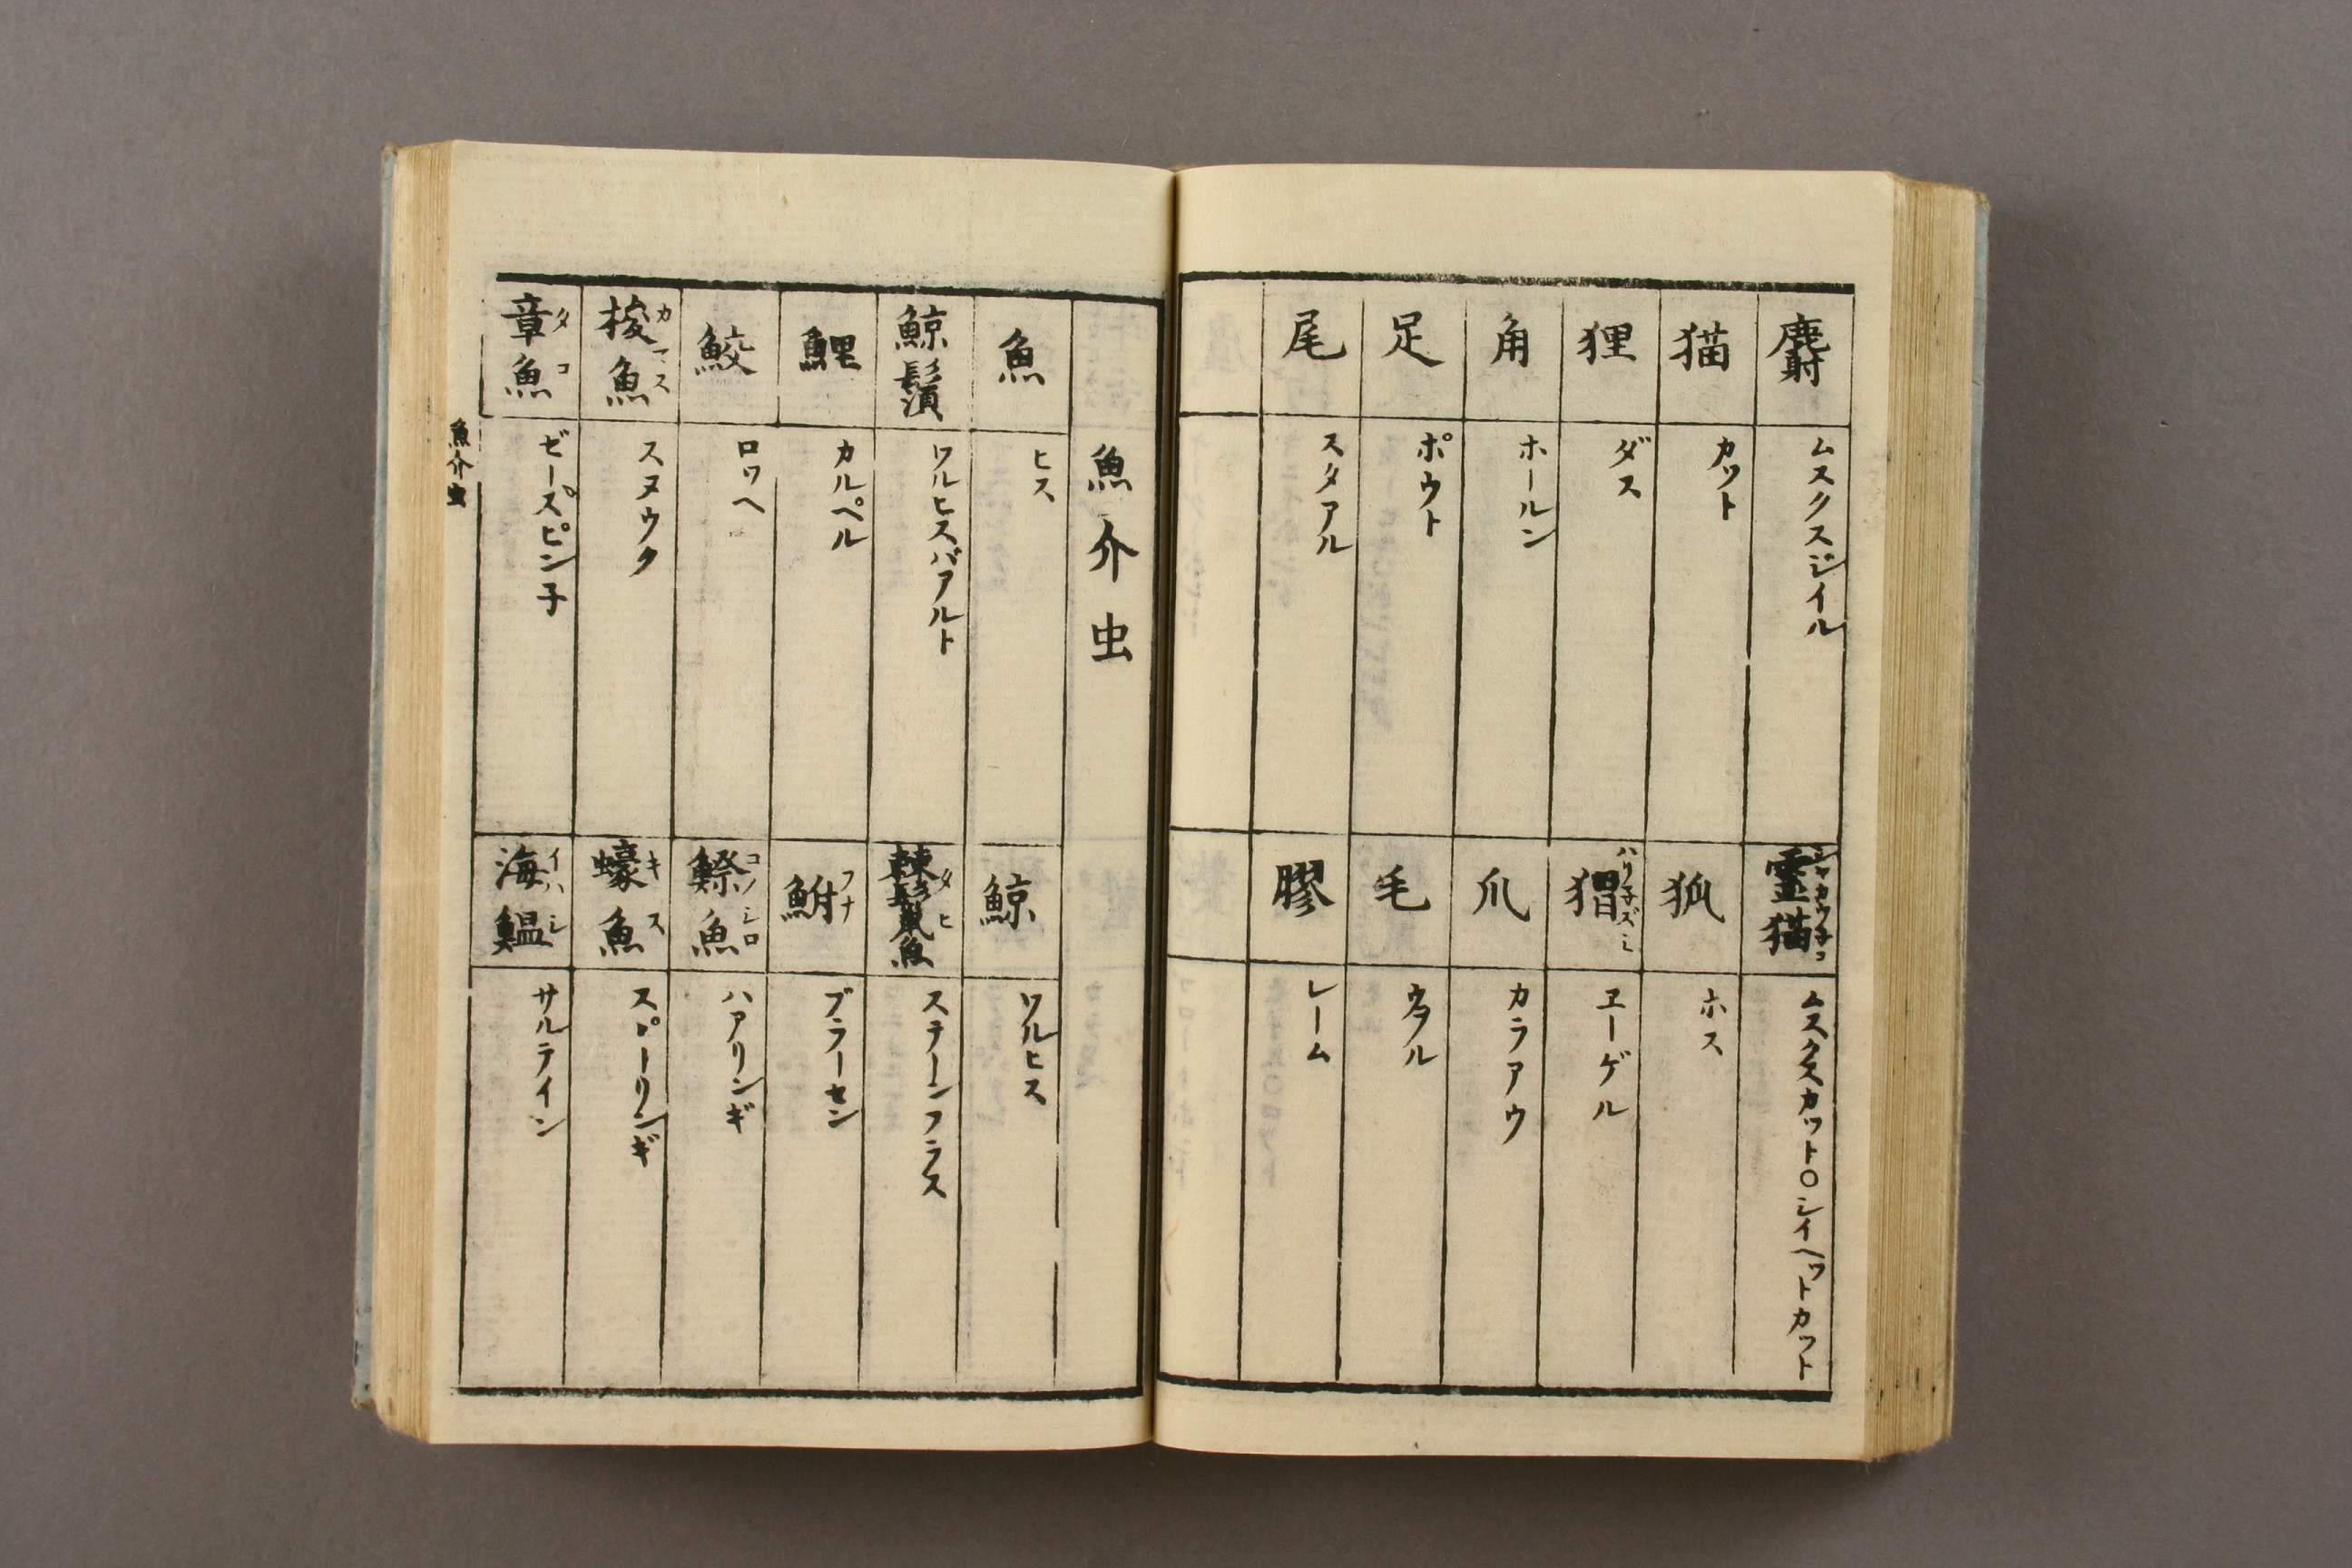 麝
ムスクスジイル
霊猫
シヤカウ子コ
ムスクスカット○シイヘットカット
猫
カット
狐
ホス
狸
ダス
猬
ハリ子ズミ
ヱーゲル
角
ホールン
爪
カラアウ
足
ポウト
毛
ウヲル
尾
スタアル
膠
レーム
魚介虫
魚
ヒス
鯨
ワルヒス
鯨鬚
ワルヒスバアルト
棘鬣魚
タヒ
ステーンフラス
鯉
カルペル
鮒
フナ
ブラーセン
鮫
ロッヘ
鰶魚
コノシロ
ハアリンギ
梭魚
カマス
スヌウク
蠔魚
キス
スポーリンギ
章魚
タコ
ゼースピン子
海鰮
イハシ
サルテイン
魚介虫